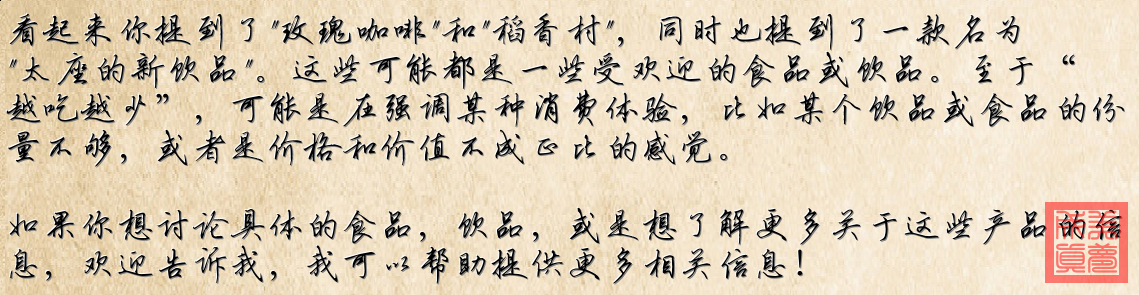 看起来你提到了"玫瑰咖啡"和"稻香村"，同时也提到了一款名为
"太座的新饮品"。这些可能都是一些受欢迎的食品或饮品。至于“
越吃越少”，可能是在强调某种消费体验，比如某个饮品或食品的份
量不够，或者是价格和价值不成正比的感觉。
如果你想讨论具体的食品，饮品，或是想了解更多关于这些产品的信
息，欢迎告诉我，我可以帮助提供更多相关信息！